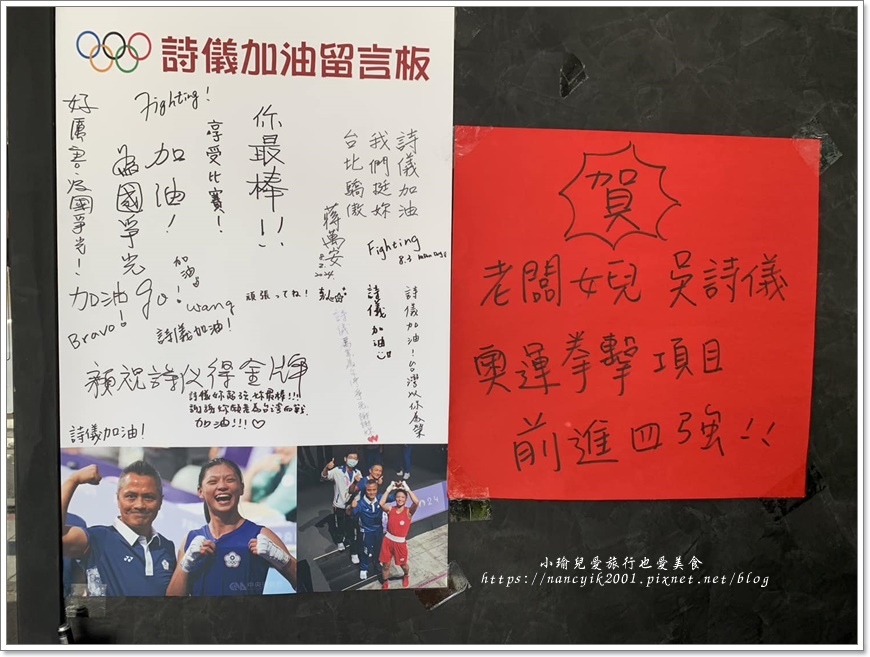 詩儀加油留言板
Fighting!
好厲害!
為國爭光!
為國爭光
加油!
享受比賽!
你最棒!!
詩儀加油
我們挺妳
台北驕傲
蔣萬安
2024
Fighting
8.3
加油
加油!
go!
Wang
Bravo!
詩儀加油!
頑張ってね!
詩儀加油
詩儀加油!台灣以你為榮
願祝詩儀得金牌
詩儀妳最棒!!!
加油!!!♡
詩儀加油!
賀
老闆女兒 吳詩儀
奧運拳擊項目
前進四強!!
小瑜兒愛旅行也愛美食
https://nancyik2001.pixnet.net/blog